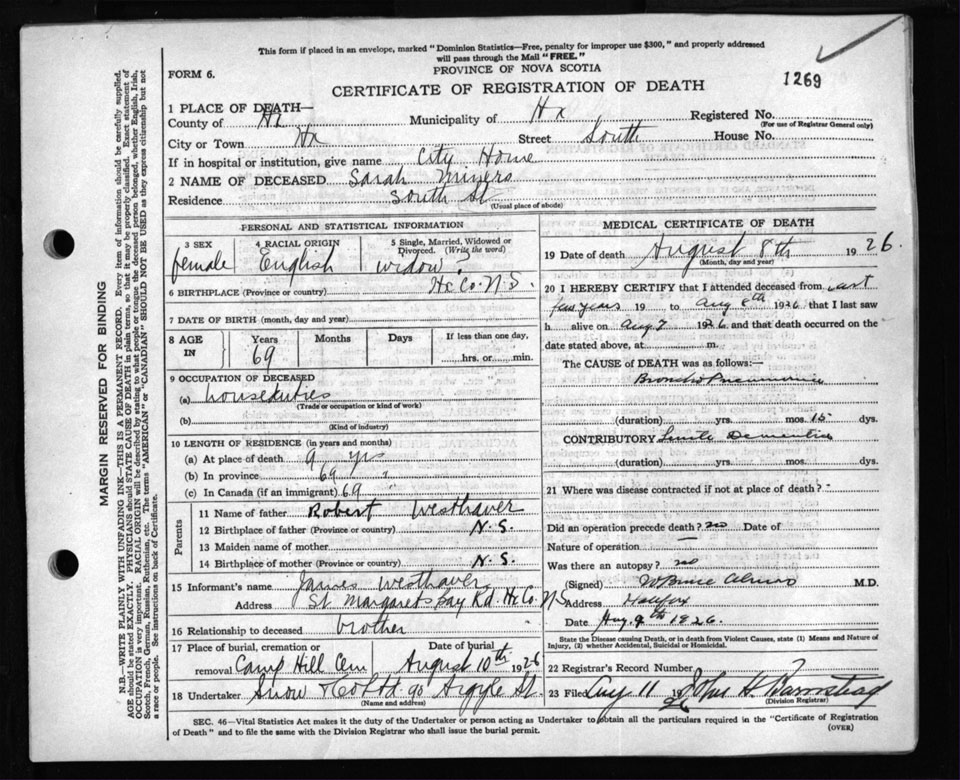 This form if placed in an envelope, marked "Dominion Statistics—Free, penalty for improper use $300," and properly addressed
will pass through the Mail "FREE."
FORM 6.
PROVINCE OF NOVA SCOTIA
1269
CERTIFICATE OF REGISTRATION OF DEATH
1 PLACE OF DEATH—
County of Hx Municipality of Hx Registered No.
(For use of Registrar General only)
City or Town Hx Street South House No.
If in hospital or institution, give name City Home
2 NAME OF DECEASED Sarah Miners
Residence South St
(Usual place of abode)
PERSONAL AND STATISTICAL INFORMATION
3 SEX 4 RACIAL ORIGIN 5 Single, Married, Widowed or Divorced. (Write the word)
female English widow ?
6 BIRTHPLACE (Province or country) Hx Co. N S.
7 DATE OF BIRTH (month, day and year)
8 AGE IN Years Months Days If less than one day,
69 hrs. or min.
9 OCCUPATION OF DECEASED
(a) houseduties
(Trade or occupation or kind of work)
(b)
(Kind of industry)
10 LENGTH OF RESIDENCE (in years and months)
(a) At place of death 9 yrs
(b) In province 69 "
(c) In Canada (if an immigrant) 69
Parents
11 Name of father Robert Westhaver
12 Birthplace of father (Province or country) N.S.
13 Maiden name of mother
14 Birthplace of mother (Province or country) N.S.
15 Informant's name James Westhaver
Address St. Margarets Bay Rd. Hx Co. N S
16 Relationship to deceased brother
17 Place of burial, cremation or removal Camp Hill Cem Date of burial August 10th 1926
18 Undertaker Snow & Co Ltd 90 Argyle St.
(Name and address)
MEDICAL CERTIFICATE OF DEATH
19 Date of death August 8th 1926.
(Month, day and year)
20 I HEREBY CERTIFY that I attended deceased from last
few years 19 to Aug 8th 1926 that I last saw
h alive on Aug 7 1926 and that death occurred on the
date stated above, at m.
The CAUSE of DEATH was as follows:—
Broncho Pneumonia
(duration) yrs. mos. 15 dys.
CONTRIBUTORY Senile Dementia
(duration) yrs. mos. dys.
21 Where was disease contracted if not at place of death?
Did an operation precede death? no Date of
Nature of operation —
Was there an autopsy? no
(Signed) W Bruce Almon M.D.
Address Halifax
Date Aug. 9th 1926.
State the Disease causing Death, or in death from Violent Causes, state (1) Means and Nature of
Injury, (2) whether Accidental, Suicidal or Homicidal.
22 Registrar's Record Number
23 Filed Aug 11 1926 John H. Barnstead
(Division Registrar)
SEC. 46—Vital Statistics Act makes it the duty of the Undertaker or person acting as Undertaker to obtain all the particulars required in the "Certificate of Registration
of Death" and to file the same with the Division Registrar who shall issue the burial permit.
(OVER)
MARGIN RESERVED FOR BINDING
N.B.—WRITE PLAINLY WITH UNFADING INK—THIS IS A PERMANENT RECORD. Every item of information should be carefully supplied.
AGE should be stated EXACTLY. PHYSICIANS should STATE CAUSE OF DEATH in plain terms, so that it may be properly classified. Exact statement of
OCCUPATION is very important. RACIAL ORIGIN will be described by stating to what people or tongue the deceased person belonged, whether English, Irish,
Scotch, French, German, Russian, Ruthenian, etc. The terms "AMERICAN" or "CANADIAN" SHOULD NOT BE USED as they express citizenship but not
a race or people. See instructions on back of Certificate.